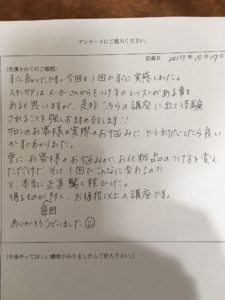 アンケートにご協力ください。
記載日 2017年10月17日
(受講されてのご感想)
すごく良かったです。今回も1回ですごに実感しました。
スキンケアはメーカーさんからもつけ方のレッスンがある事も
あると思いますが、是非こちらの講座に出て体験
されることを強くお勧め致します!!
サロンのお客様の実際のお悩みにどう対応したら良い
かすごくわかりました。
更に、お客様のお悩みが、お化粧品のつけ方を変え
ただけで、そして1回でこんなに変わるの?!
と、本当に正直驚く程でした。
得るものが多く、お値段以上の講座です。
毎回
ありがとうございました
(今後やってほしい講座がありましたらご記入下さい。)